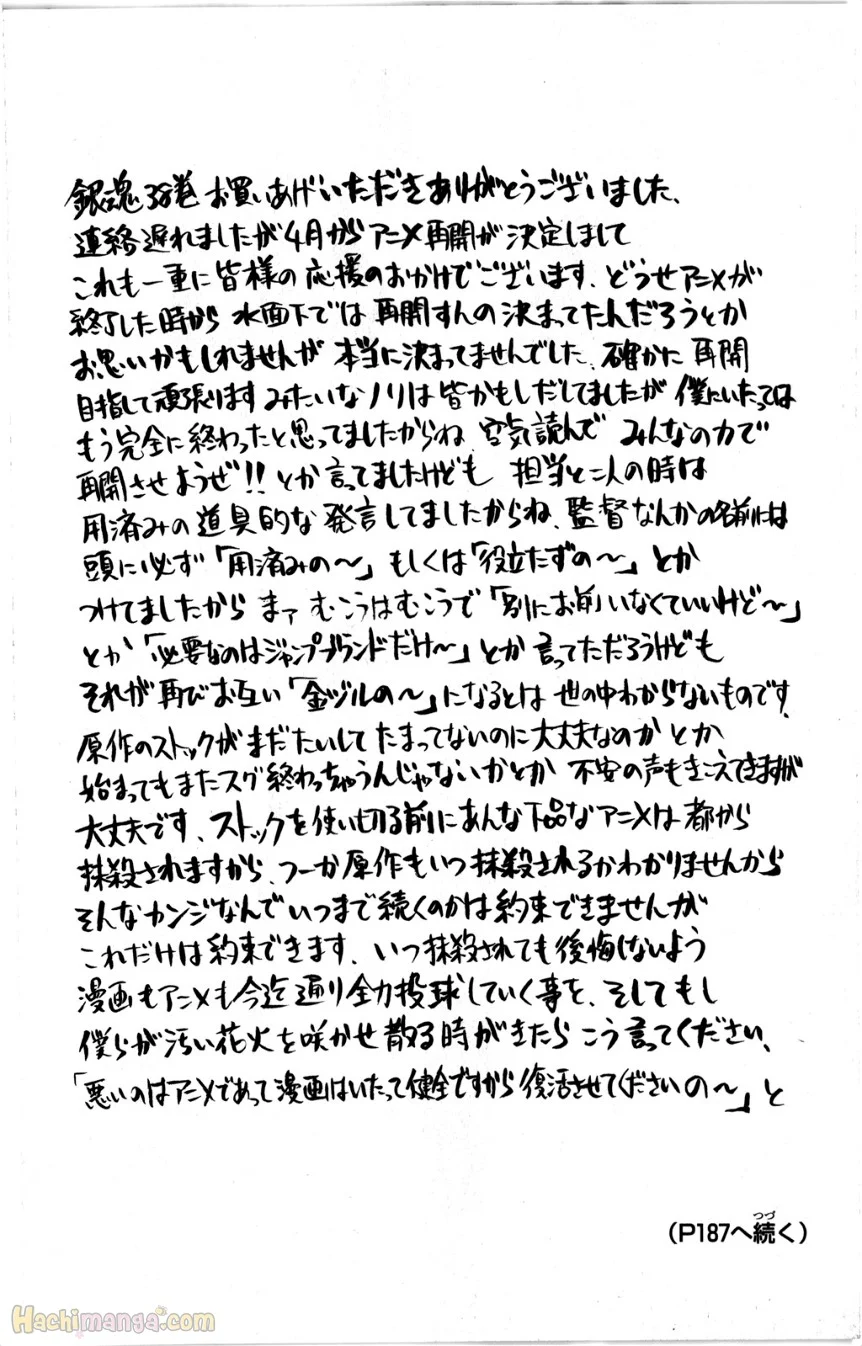 銀魂38巻お買いあげいただきありがとうございました、
連絡遅れましたが4月からアニメ再開が決定しまして
これも一重に皆様の応援のおかげでございます、どうせアニメが
終了した時から水面下では再開すんの決まってたんだろうとか
お思いかもしれませんが本当に決まってませんでした、確かに再開
目指して頑張りますみたいなノリは皆かもしだしてましたが僕にいたっては
もう完全に終わったと思ってましたからね、空気読んでみんなの力で
再開させようぜ!!とか言ってましたけども 担当と二人の時は
用済みの道具的な発言してましたからね、監督なんかの名前には
頭に必ず「用済みの〜」もしくは「役立たずの〜」とか
つけてましたから まァむこうはむこうで「別にお前いなくていいけど〜」
とか「必要なのはジャンプブランドだけ〜」とか言ってただろうけども
それが再びお互い「金ヅルの〜」になるとは世の中わからないものです、
原作のストックがまだたいしてたまってないのに大丈夫なのかとか
始まってもまたスグ終わっちゃうんじゃないかとか 不安の声もきこえてきますが
大丈夫です、ストックを使い切る前にあんな下品なアニメは都から
抹殺されますから、つーか原作もいつ抹殺されるかわかりませんから
そんなカンジなんでいつまで続くのかは約束できませんが
これだけは約束できます、いつ抹殺されても後悔しないよう
漫画もアニメも今迄通り全力投球していく事を、そしてもし
僕らが汚い花火を咲かせ散る時がきたらこう言ってください、
「悪いのはアニメであって漫画はいたって健全ですから復活させてくださいの〜」と
(P187へ続く)
つづ
Hachimanga.com